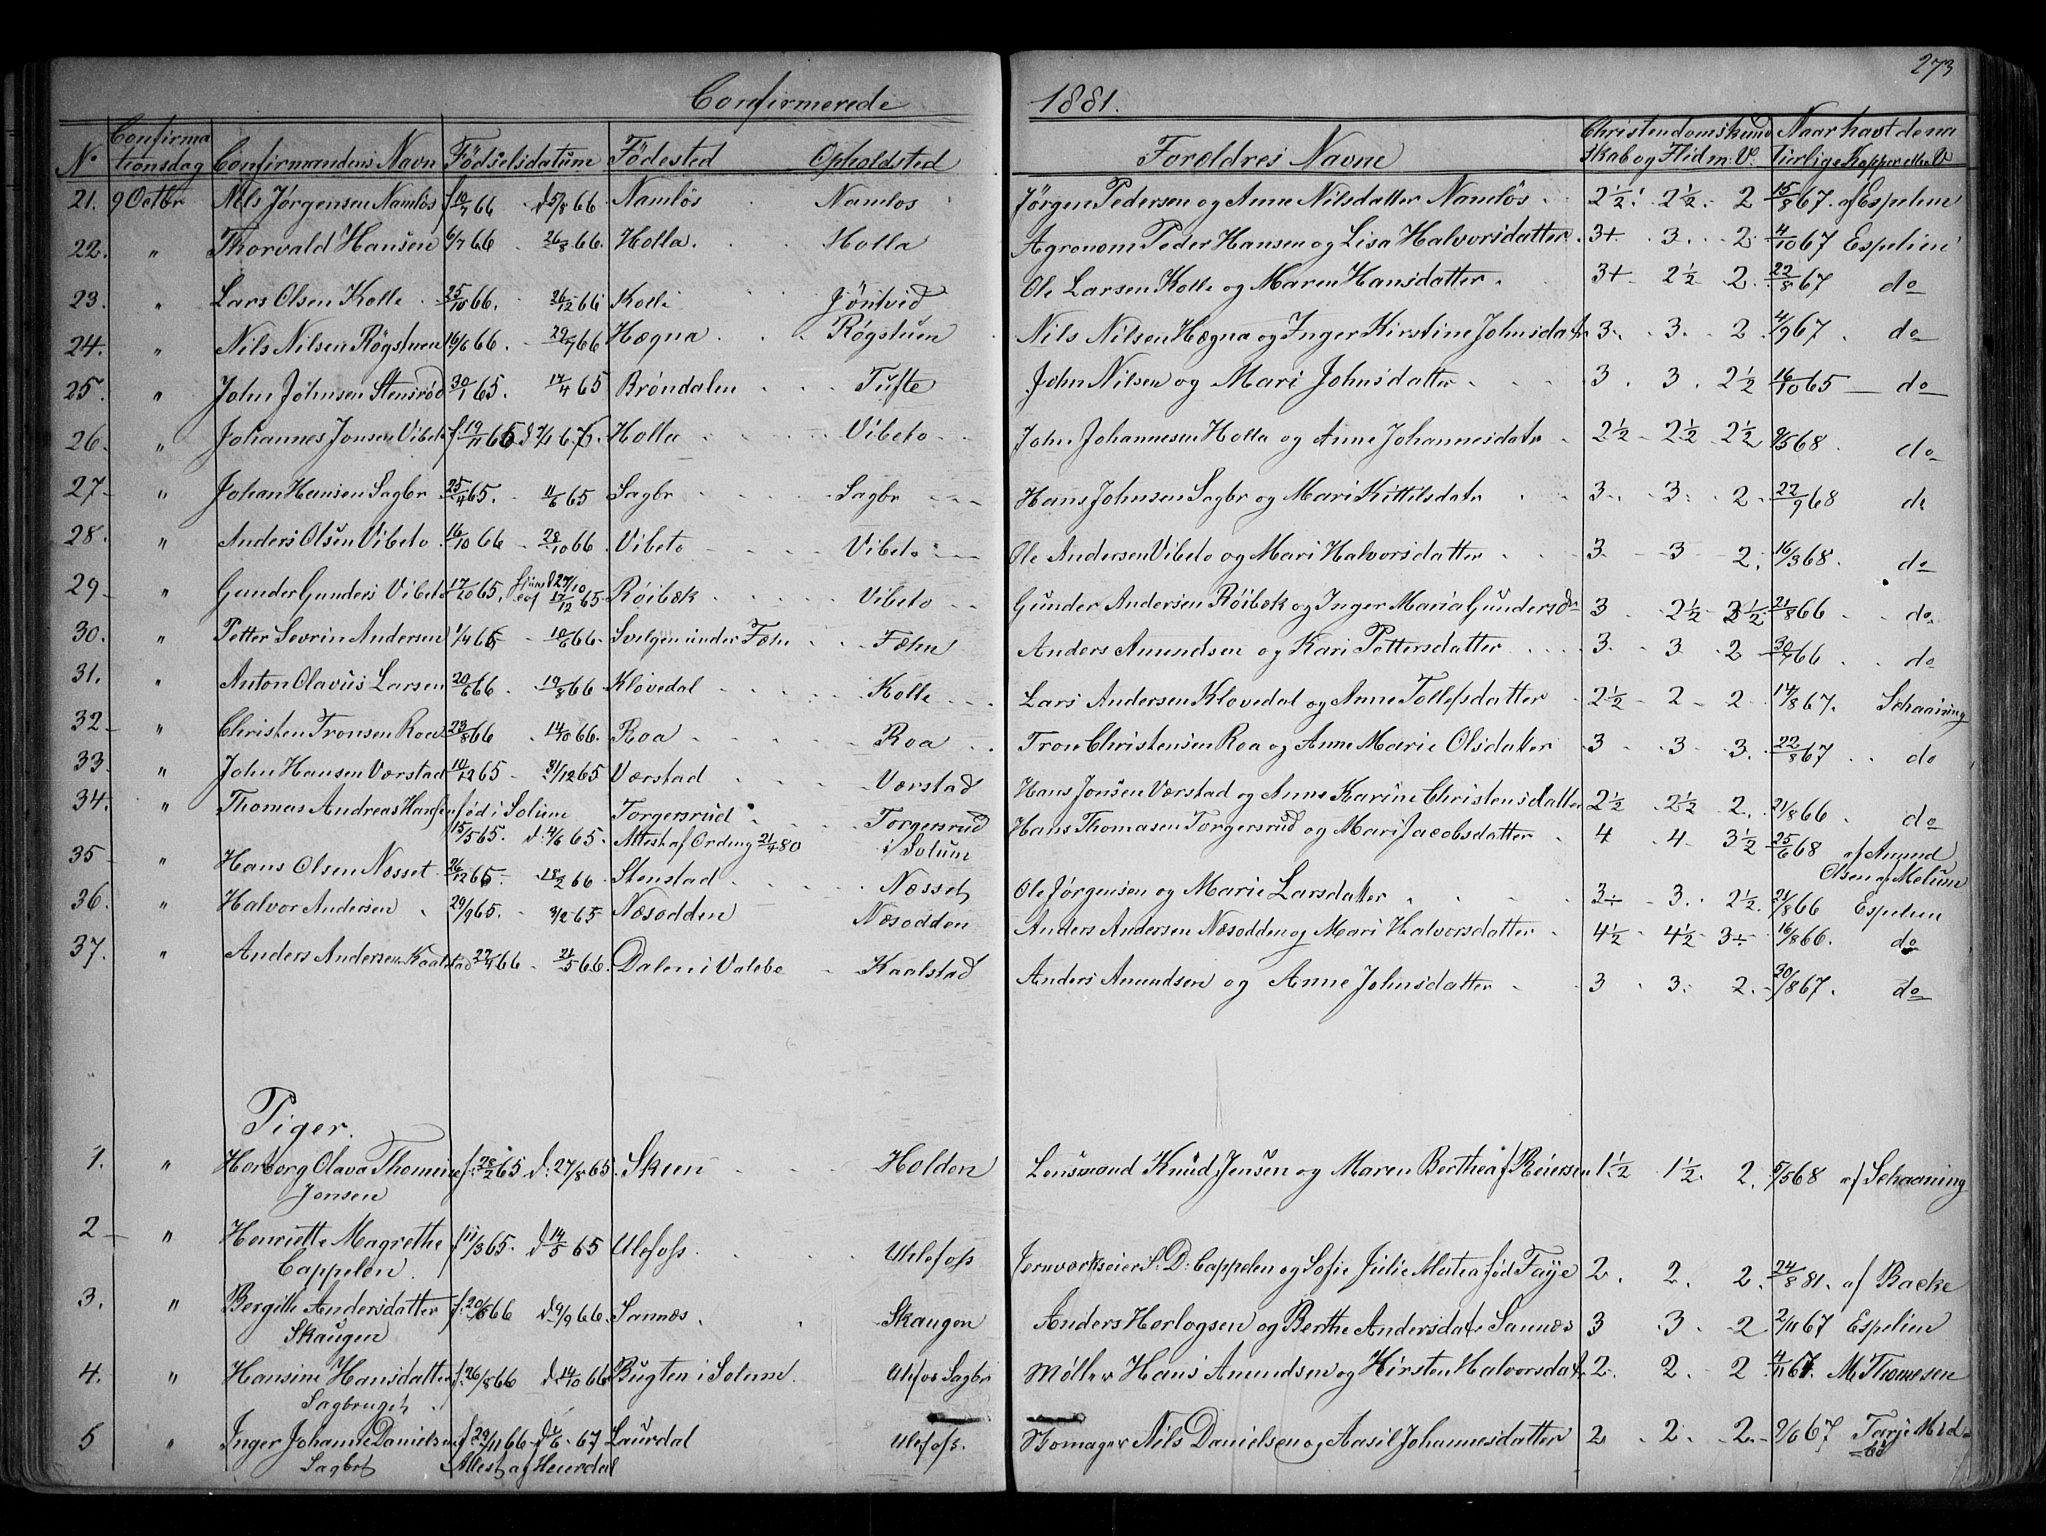 273
Confirmerede 1881.
No Confirmationsdag Confirmandens Navn Födselsdatum Födested Opholdsted Forældres Navne Christendomskundskab og Flid m: V. Naar havt de naturlige Kopper eller V
21. 9 Octbr Nils Jörgensen Namlös f 10/7 66 d 5/8 66 Namlös Namlos Jörgen Pedersen og Anne Nilsdatter Namlös 2½ 2½ 2 15/8 67 af Espelin
22. " Thorvald Hansen 6/7 66 26/8 66. Holla Holla Agronom Peder Hansen og Lisa Halvorsdatter 3+ 3. 2. 4/10 67 Espelin
23. " Lars Olsen Kolle 25/10 66. 26/12 66 Kolli Jöntvid Ole Larsen Kolle og Maren Hansdatter 3+ 2½ 2. 22/8 67 do
24. " Nils Nilsen Rögstuen 16/6 66. 29/7 66 Hægna Rögstuen Nils Nilsen Hægna og Inger Kirstine Johnsdatr 3. 3. 2 4/9 67 do
25. " John Johnsen Stensröd 30/1 65. 17/4 65 Bröndalen Tufte John Nilsen og Mari Johnsdatter 3. 3. 2½ 16/10 65 do
26 " Johannes Jonsen Vibeto f 19/11 Holla Vibeto John Johannesen Holla og Anne Johannesdatr 2½ 2½ 2½ 9/5 68. do
27 " Johan Hansen Sagbr 25/4 65. 11/6 65 Sagbr Sagbr Hans Johnsen Sagbr og Mari Kittilsdatr 3. 3. 2 22/9 68 do
28. " Anders Olsen Vibeto 16/10 66 28/10 66. Vibeto Vibeto Ole Andersen Vibeto og Mari Halvorsdatter 3 3 2. 16/3 68. do
29 " Gunder Gunders Vibeto 17/10 65. 27/10 17/12 65 Röibæk Vibeto Gunder Andersen Röibæk og Inger Maria Gundersdr 3 2½ 21/8 66 do
30. " Petter Sevrin Andersen 1/4 66 10/6 66 Svelgen under Fæhn Fæhn Anders Amundsen og Kari Pettersdatter 3. 3 2 30/7 66 do
31. " Anton Olavus Larsen 20/6 66 19/8 66 Klövedal Kolle Lars Andersen Klovedal og Anne Tollefsdatter 2½ 2 2 14/8 67. Schaaning
32 " Christen Tronsen Roa 23/8 66 14/10 66. Roa Roa Tron Christensen Roa og Anne Marie Olsdatter 3 3. 3. 22/8 67 do
33. " John Hansen Værstad 10/12 65 31/12 65 Værstad Værstad Hans Jonsen Værstad og Anne Karine Christensdatter 2½ 2½ 2. 21/8 66 do
34. " Thomas Andreas Hansen föd i Solum 15/5 65. d. 4/6 65. Torgersrud Attest af Ording 21/4 80 Torgersrud i Solum Hans Thomasen Torgersrud og Mari Jacobsdatter 4 4 3½ 25/6 68 af Amund Olsen af Melum
35 " Hans Olsen Næsset 26/12 65 18/2 66 Stenstad Næsset Ole Jörgensen og Marie Larsdatter 3÷ 3. 2½ 21/8 66 Espelin
36. " Halvor Andersen 29/9 65. 3/2 65 Næsodden Næsodden Anders Andersen Næsodden og Mari Halvorsdatter 4½ 4½ 3÷ 16/8 66. do
37. " Anders Andersen Kaalstad 22/4 66 21/5 66. Dalen i Valebø Kaalstad Anders Amundsen og Anne Johnsdatter 3 3. 2. 30/8 67. do
Piger.
1. " Horborg Olava Thomine f. 28/2 65 d: 27/8 65. Skien Holden Lensmand Knud Jensen og Maren Berthea f Reiersen 1½ 1½ 2. 5/5 68 af Schaaning
Jensen
2 " Henriette Magrethe f 11/3 65. d 14/5 65 Ulefoss. Uhlefoss Jernværkseier S. D: Cappelen og Sofie Julie Matea föd Faÿe 2. 2. 2. 24/8 81. af Backe
Cappelen
3. " Bergille Andersdatter f. 20/6 66 d 9/9 66. Sannæs. Skaugen Anders Horlogsen og Berthe Andersdatr Sannæs 3 3. 2 2/11 67 Espelin
Skaugen
4. " Hansine Hansdatter f. 26/8 66 d. 14/10 66 Bugten i Solum. Ulefos Sagbr Möller Hans Amundsen og Kirsten Halvorsdatr 2. 2. 2 4/11 67. M Thomesen
Sagbruget
5 " Inger Johanne Danielsen f 29/11 66 Laurdal Ulefoss. Skomager Nils Danielsen og Aasil Johannesdatter 2 2. 2. 9/6 67 Tarje
Sagbr. Attest af Heierdal